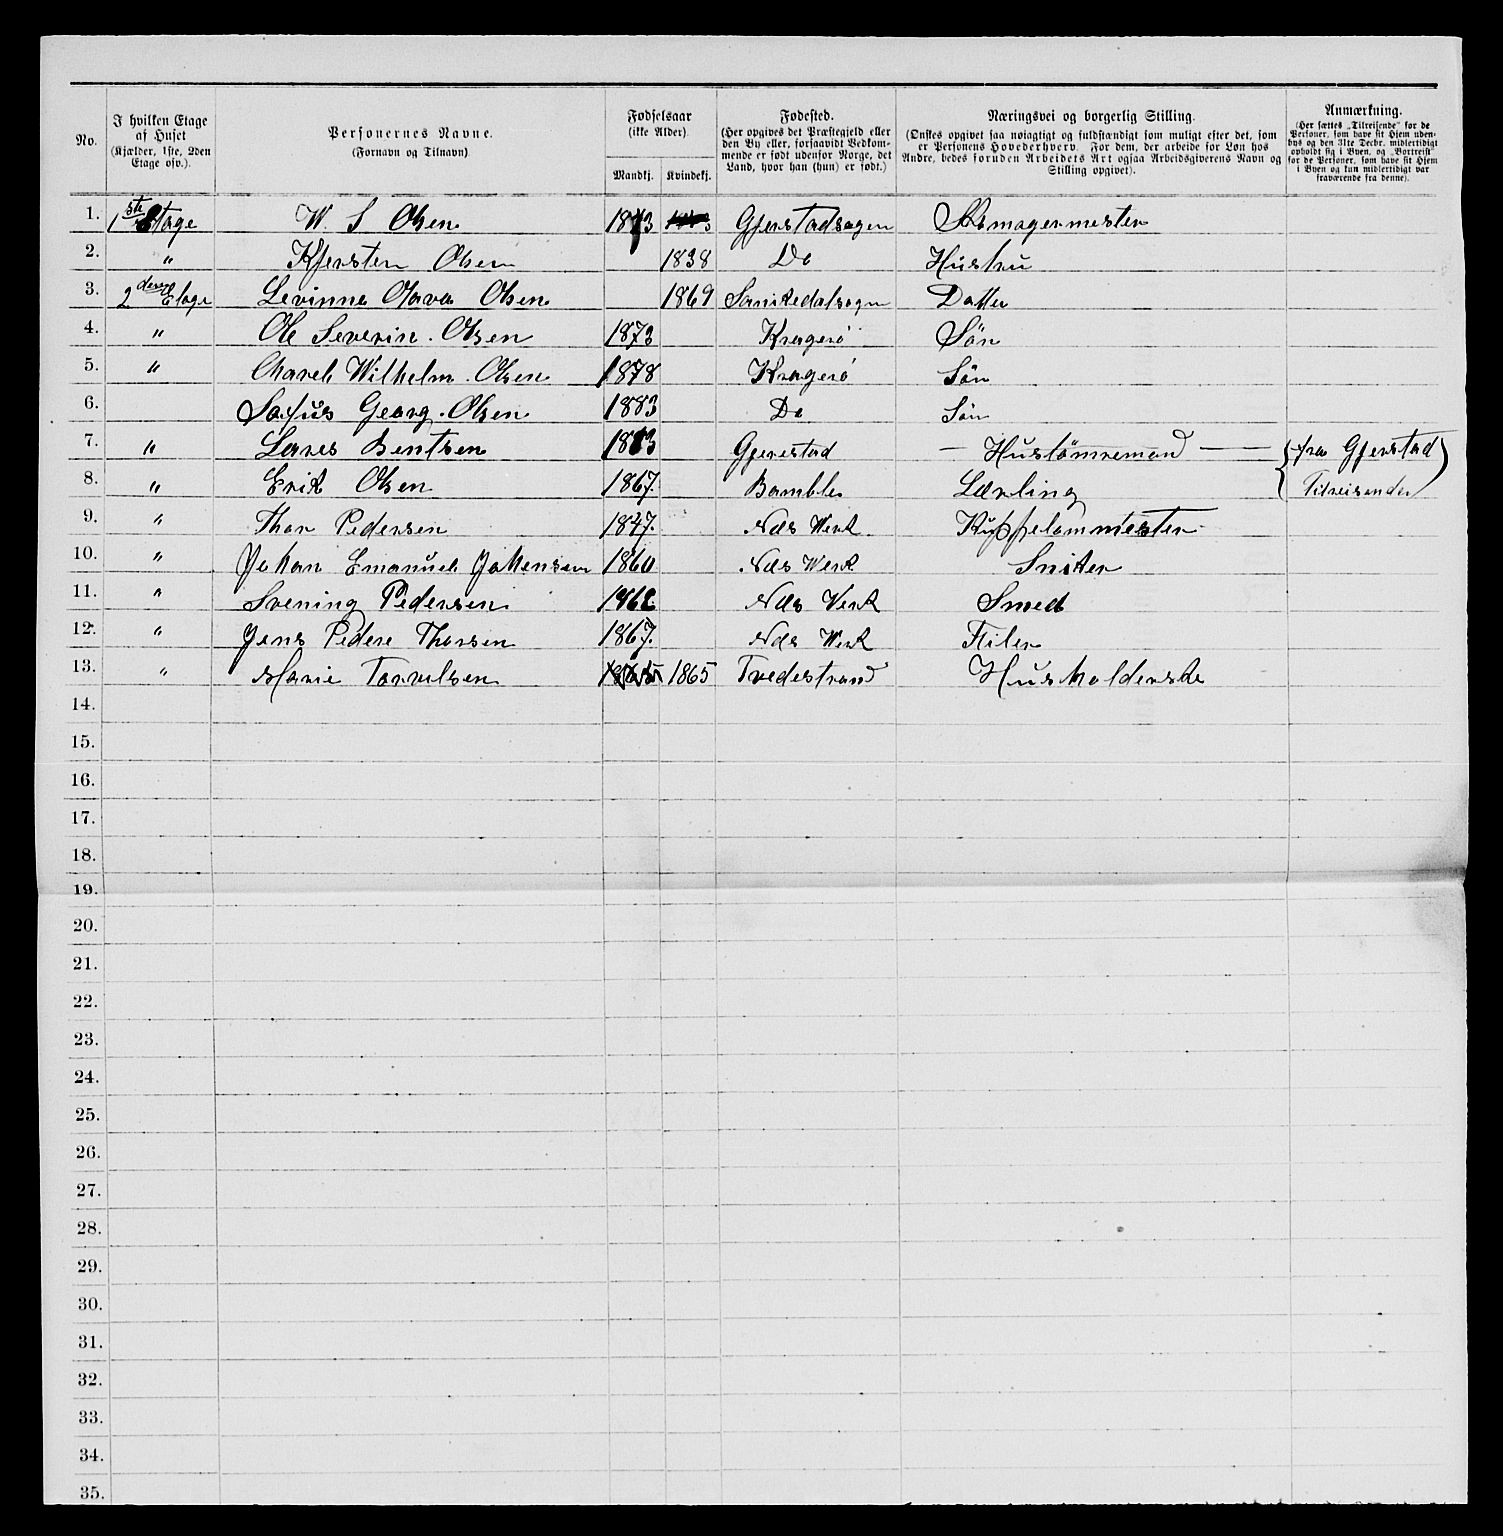 No.
I hvilken Etage af Huset (Kjælder, 1ste, 2den Etage osv.).
Personernes Navne. (Fornavn og Tilnavn)
Fødselsaar (ikke Alder).
Mandkj. Kvindekj.
Fødested. (Her opgives det Præstegjeld eller den By eller, forsaavidt Vedkommende er født udenfor Norge, det Land, hvor han (hun) er født.)
Næringsvei og borgerlig Stilling. (Ønskes opgivet saa nøiagtigt og fuldstændigt som muligt efter det, som er Personens Hovederhverv. For dem, der arbeide for Løn hos Andre, bedes foruden Arbeidets Art ogsaa Arbeidsgiverens Navn og Stilling opgivet).
Anmærkning. (Her sættes „Tilreisende" for de Personer, som have sit Hjem udenbys og den 31te Decbr. midlertidigt opholdt sig i Byen, og „Bortreist" for de Personer, som have sit Hjem i Byen og kun midlertidigt var fraværende fra denne).
1. 1ste Etage W. S Olsen Gjerstadsogen Skomagermester
2. " Kjersten Olsen 1838 Do Hustru
3. 2den Etage Levinne Olava Olsen 1869 Sanikedalsogen Datter
4. " Ole Severin. Olsen 1873 Kragerø Søn
5. " Charels Wilhelm. Olsen 1878 Kragerø Søn
6. Georg. Olsen 1883 Do Søn
7. " Lares Bentsen Gjerestad — Hustømremand — (fra Gjerstad
8. " Erik Olsen 1867. Bamble Lærling Tilreisender)
9. " Thor Pedersen 1847. Næs Werk Kuppelommester
10. " Johan Emanuel Johensen 1860 Næs Werk Sniker
11. " Svening Pedersen Næs Verk Smed
12. " Jens Pedere Thorsen 1867. Næs Werk Filer
13. " Marie Torvelsen 1865 Tvedestrand Husholderske
14.
15.
16.
17.
18.
19.
20.
21.
22.
23.
24.
25.
26.
27.
28.
29.
30.
31.
32.
33.
34.
35.